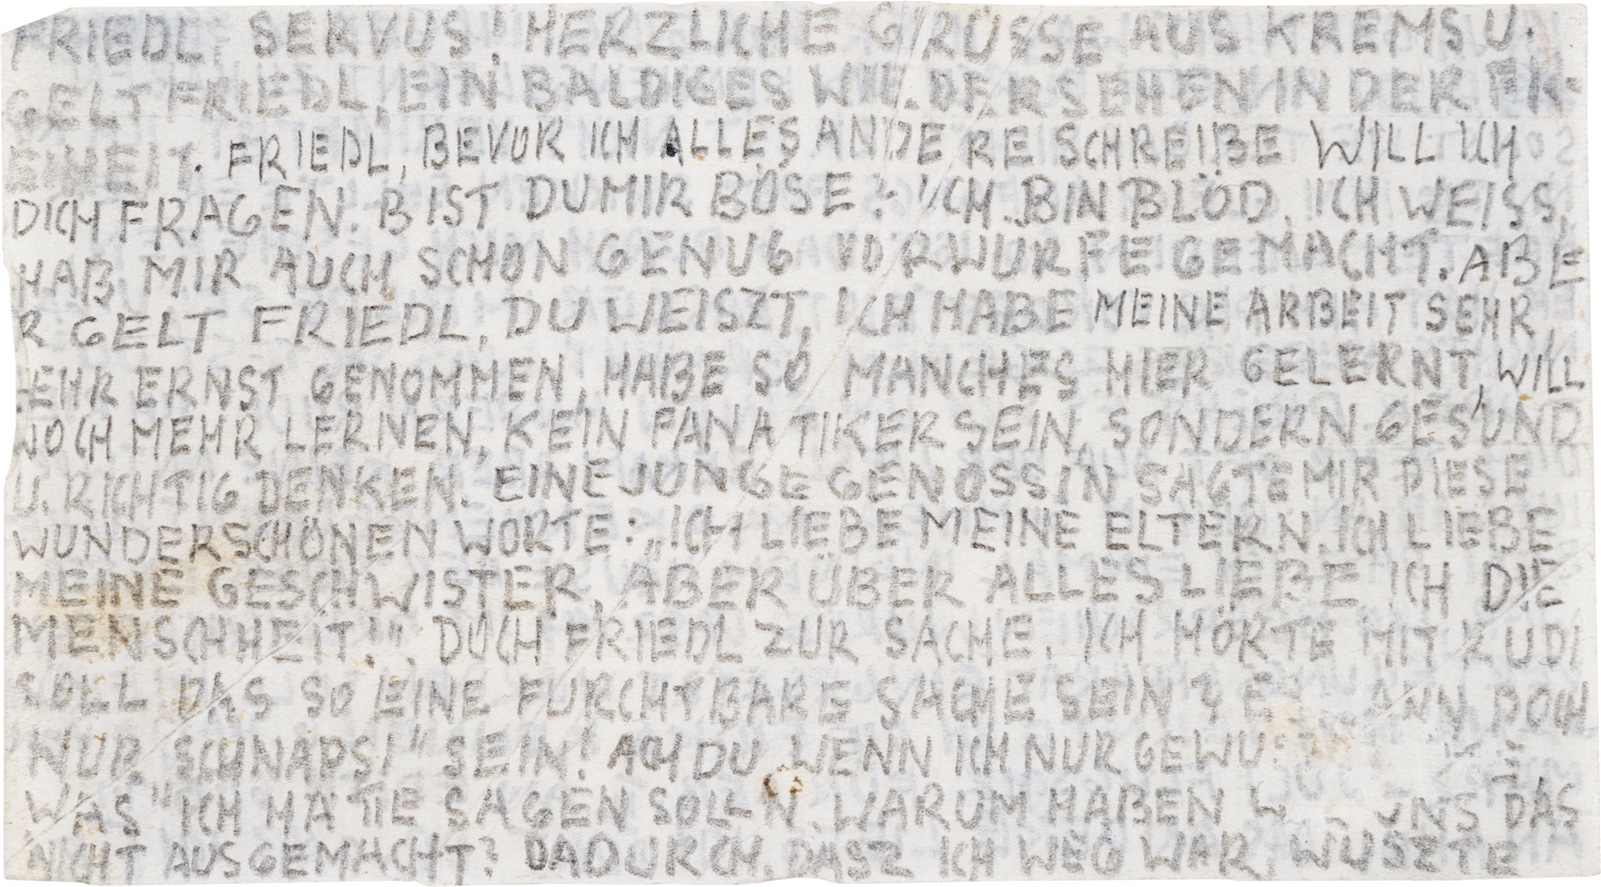 FRIEDL, SERVUS! HERZLICHE GRÜSSE AUS KREMS U.
GELT FRIEDL, EIN BALDIGES WIEDERSEHEN IN DER FR-
EIHEIT. FRIEDL, BEVOR ICH ALLES ANDERE SCHREIBE WILL ICH
DICH FRAGEN. BIST DU MIR BÖSE? ICH BIN BLÖD, ICH WEISS,
HAB MIR AUCH SCHON GENUG VORWÜRFE GEMACHT. ABE
R GELT FRIEDL, DU WEISZT, ICH HABE MEINE ARBEIT SEHR
SEHR ERNST GENOMMEN, HABE SO MANCHES HIER GELERNT, WILL
NOCH MEHR LERNEN, KEIN FANATIKER SEIN, SONDERN GESUND
U. RICHTIG DENKEN. EINE JUNGE GENOSSIN SAGTE MIR DIESE
WUNDERSCHÖNEN WORTE: „ICH LIEBE MEINE ELTERN. ICH LIEBE
MEINE GESCHWISTER, ABER ÜBER ALLES LIEBE ICH DIE
MENSCHHEIT!" DOCH FRIEDL ZUR SACHE. ICH HÖRTE MIT RUDI
SOLL DAS SO EINE FURCHTBARE SACHE SEIN?
"NUR SCHNAPSI" SEIN! ACH DU, WENN ICH NUR
WAS ICH HÄTTE SAGEN SOLLN. WARUM HABEN UNS DAS
NICHT AUSGEMACHT? DADURCH, DASZ ICH WEG WAR, WUSZTE